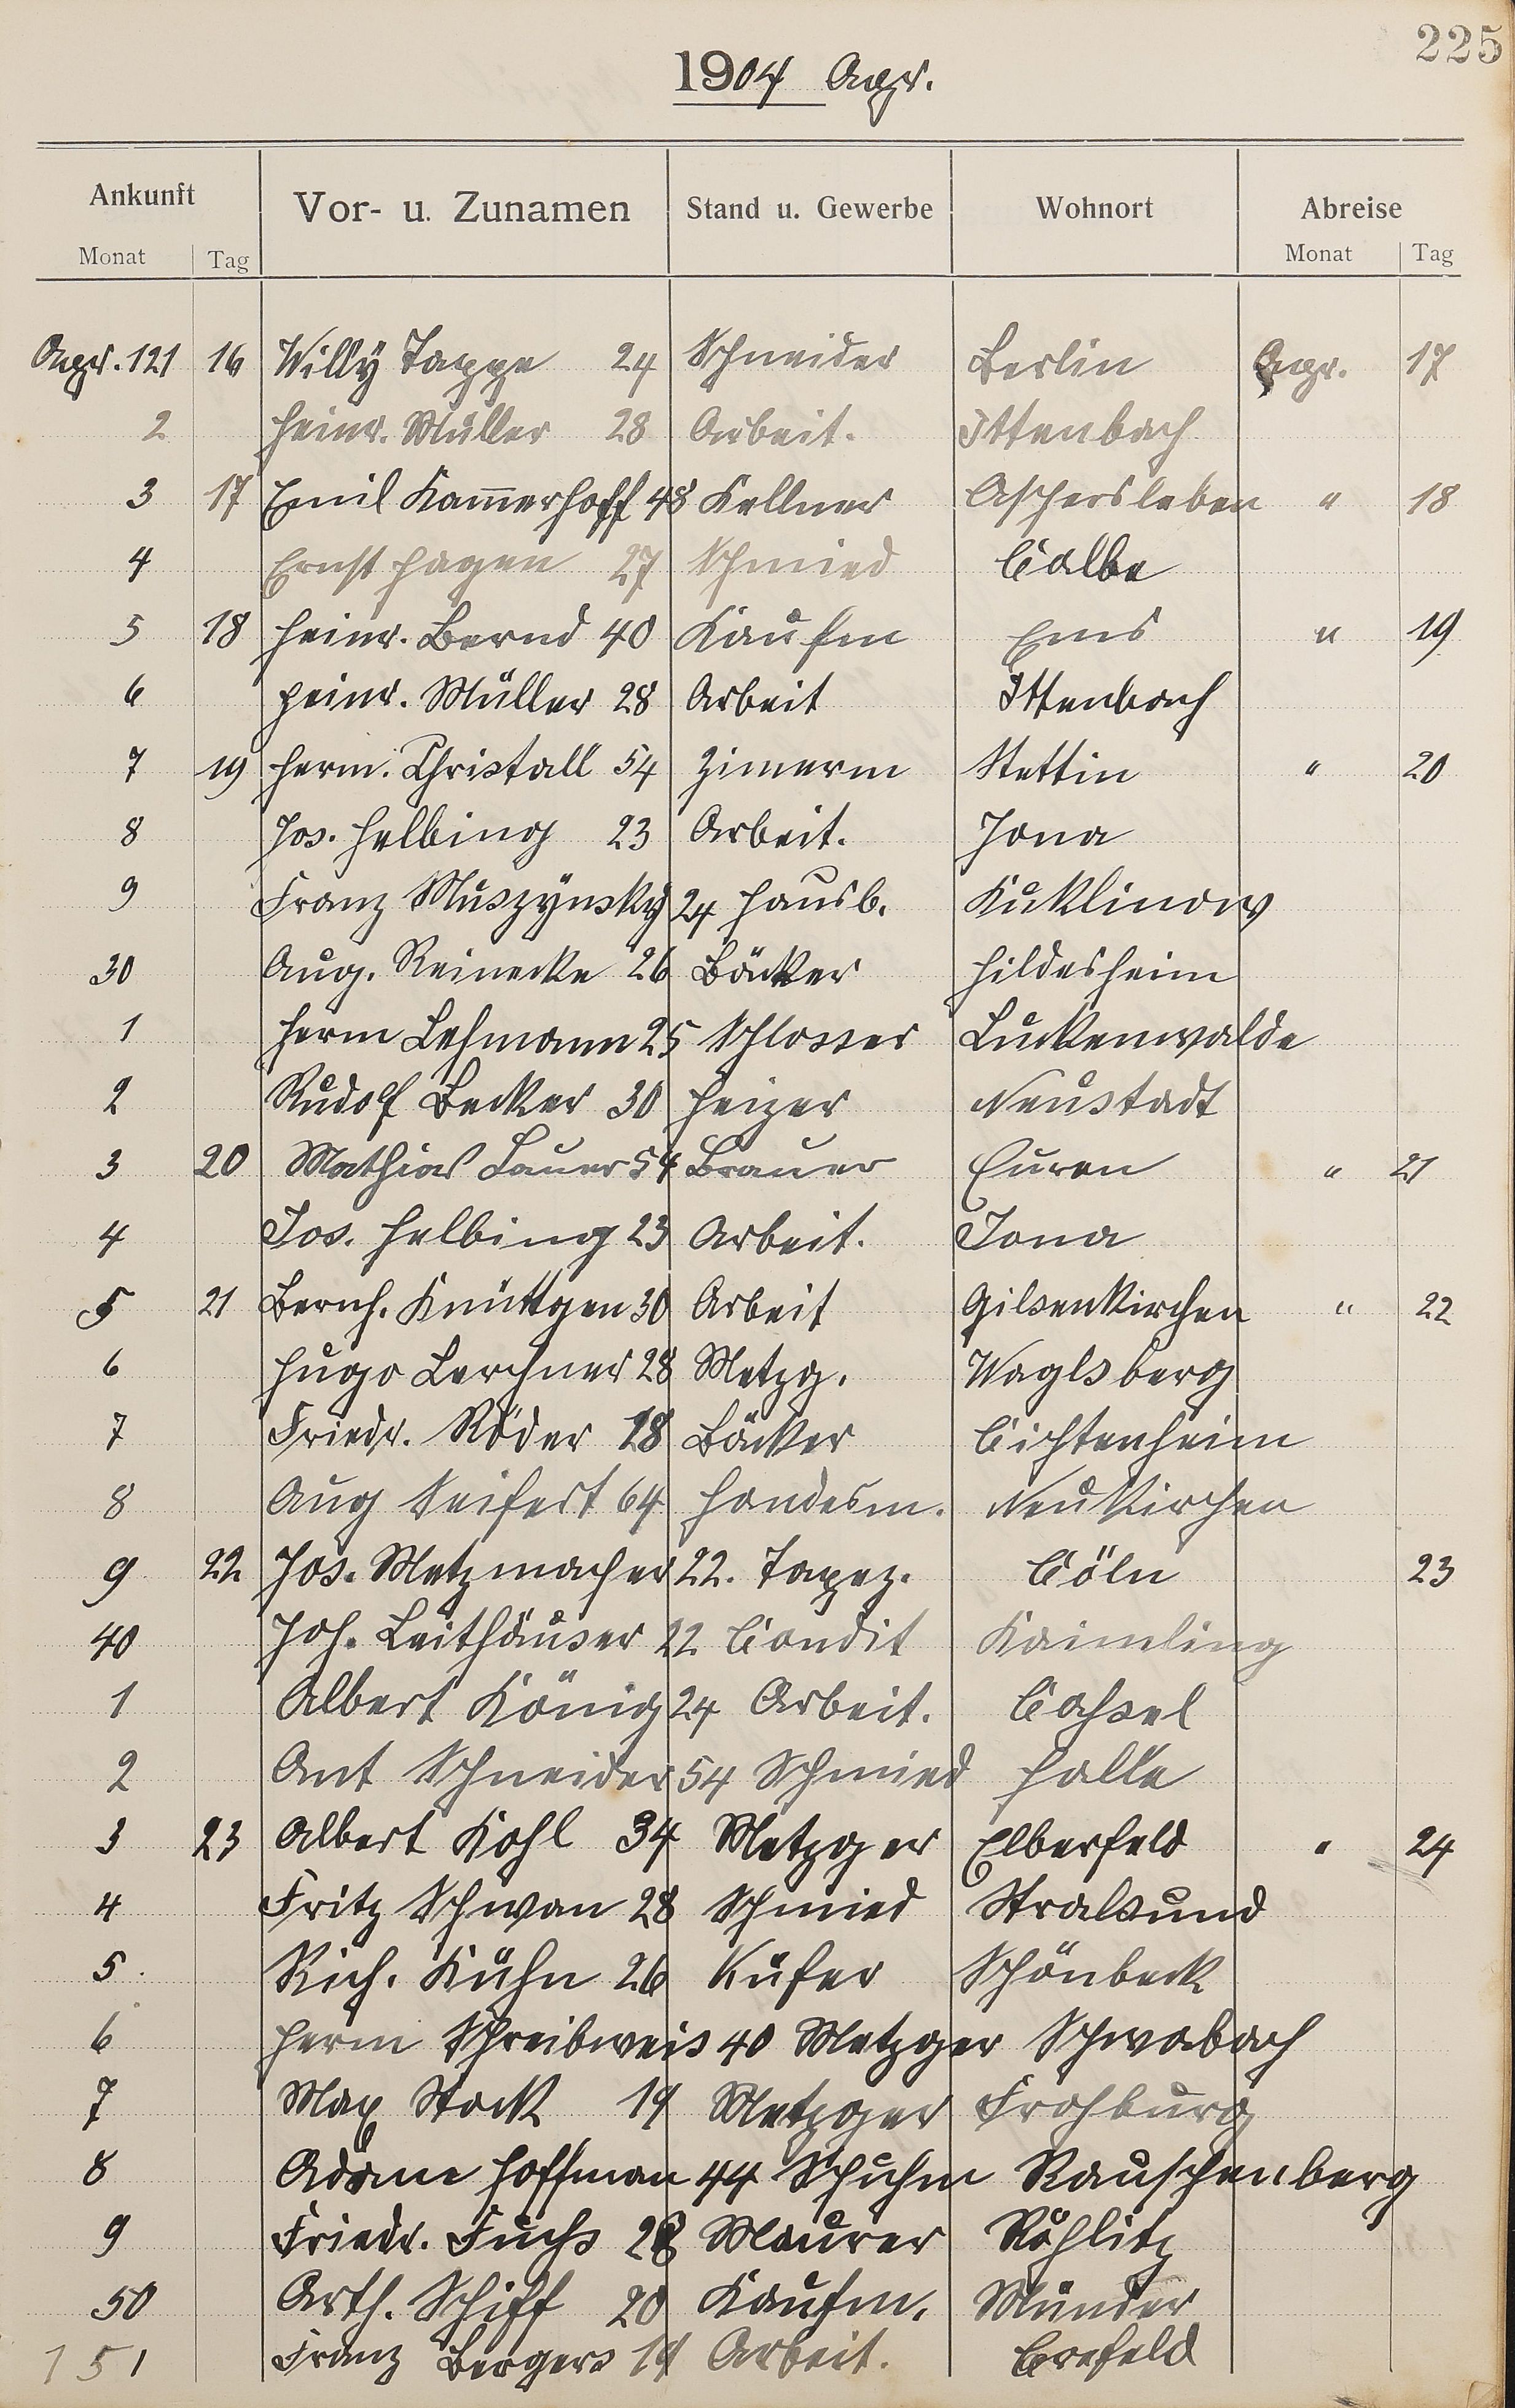 225
1904 Apr.
Ankunft Vor- u. Zunamen Stand u. Gewerbe Wohnort Abreise
Monat Tag Monat Tag
Apr. 121 16 Willy Tappe 24 Schneider Berlin Apr. 17
2 Heinr. Müller 28 Arbeit. Ittenbach
3 17 Emil Kam̅erhoff 48 Kellner Aschersleben " 18
4 Ernst Hagen 27 Schmied Calbe
5 18 Heinr. Bernd 40 Kaufm Ems " 19
6 Heinr. Müller 28 Arbeit Ittenbach
7 19 Herm. Christall 54 Zimerm Stettin " 20
8 Jos. Helbing 23 Arbeit. Jona
9 Franz Muszÿnskÿ 24 Hausb. Kuklinow
30 Aug. Reinecke 26 Bäcker Hildesheim
1 Herm Lehmann 25 Schlosser Luckenwalde
2 Rudolf Becker 30 Heizer Neustadt
3 20 Mathias Lauer 54 Brauer Euren " 21
4 Jos. Helbing 23 Arbeit. Jona
5 21 Bernh. Knüttgen 30 Arbeit Gilsenkirchen " 22
6 Hugo Lerchner 28 Metzg. Waglsberg
7 Friedr. Röder 18 Bäcker Lichtenheim
8 Aug Seifert 64 Handesm. Neukirchen
9 22 Jos. Metzmacher 22. Tapez. Cöln 23
40 Joh. Leithäuser 22 Condit Kaimling
1 Albert König 24 Arbeit. Cassel
2 Ant Schneider 54 Schmied Halle
3 23 Albert Kohl 34 Metzger Elberfeld " 24
4 Fritz Schwan 28 Schmied Stralsund
5 Rich. Kühn 26 Küfer Schönbeck
6 Herm Schreibweis 40 Metzger Schwabach
7 Max Stock 19 Metzger Frohburg
8 Adam Hoffman 44 Schuhm Rauschenberg
9 Friedr. Fuchs 28 Maurer Röhlitz
50 Arth. Schiff 20 Kaufm. Münder
151 Franz Bergers 19 Arbeit. Crefeld